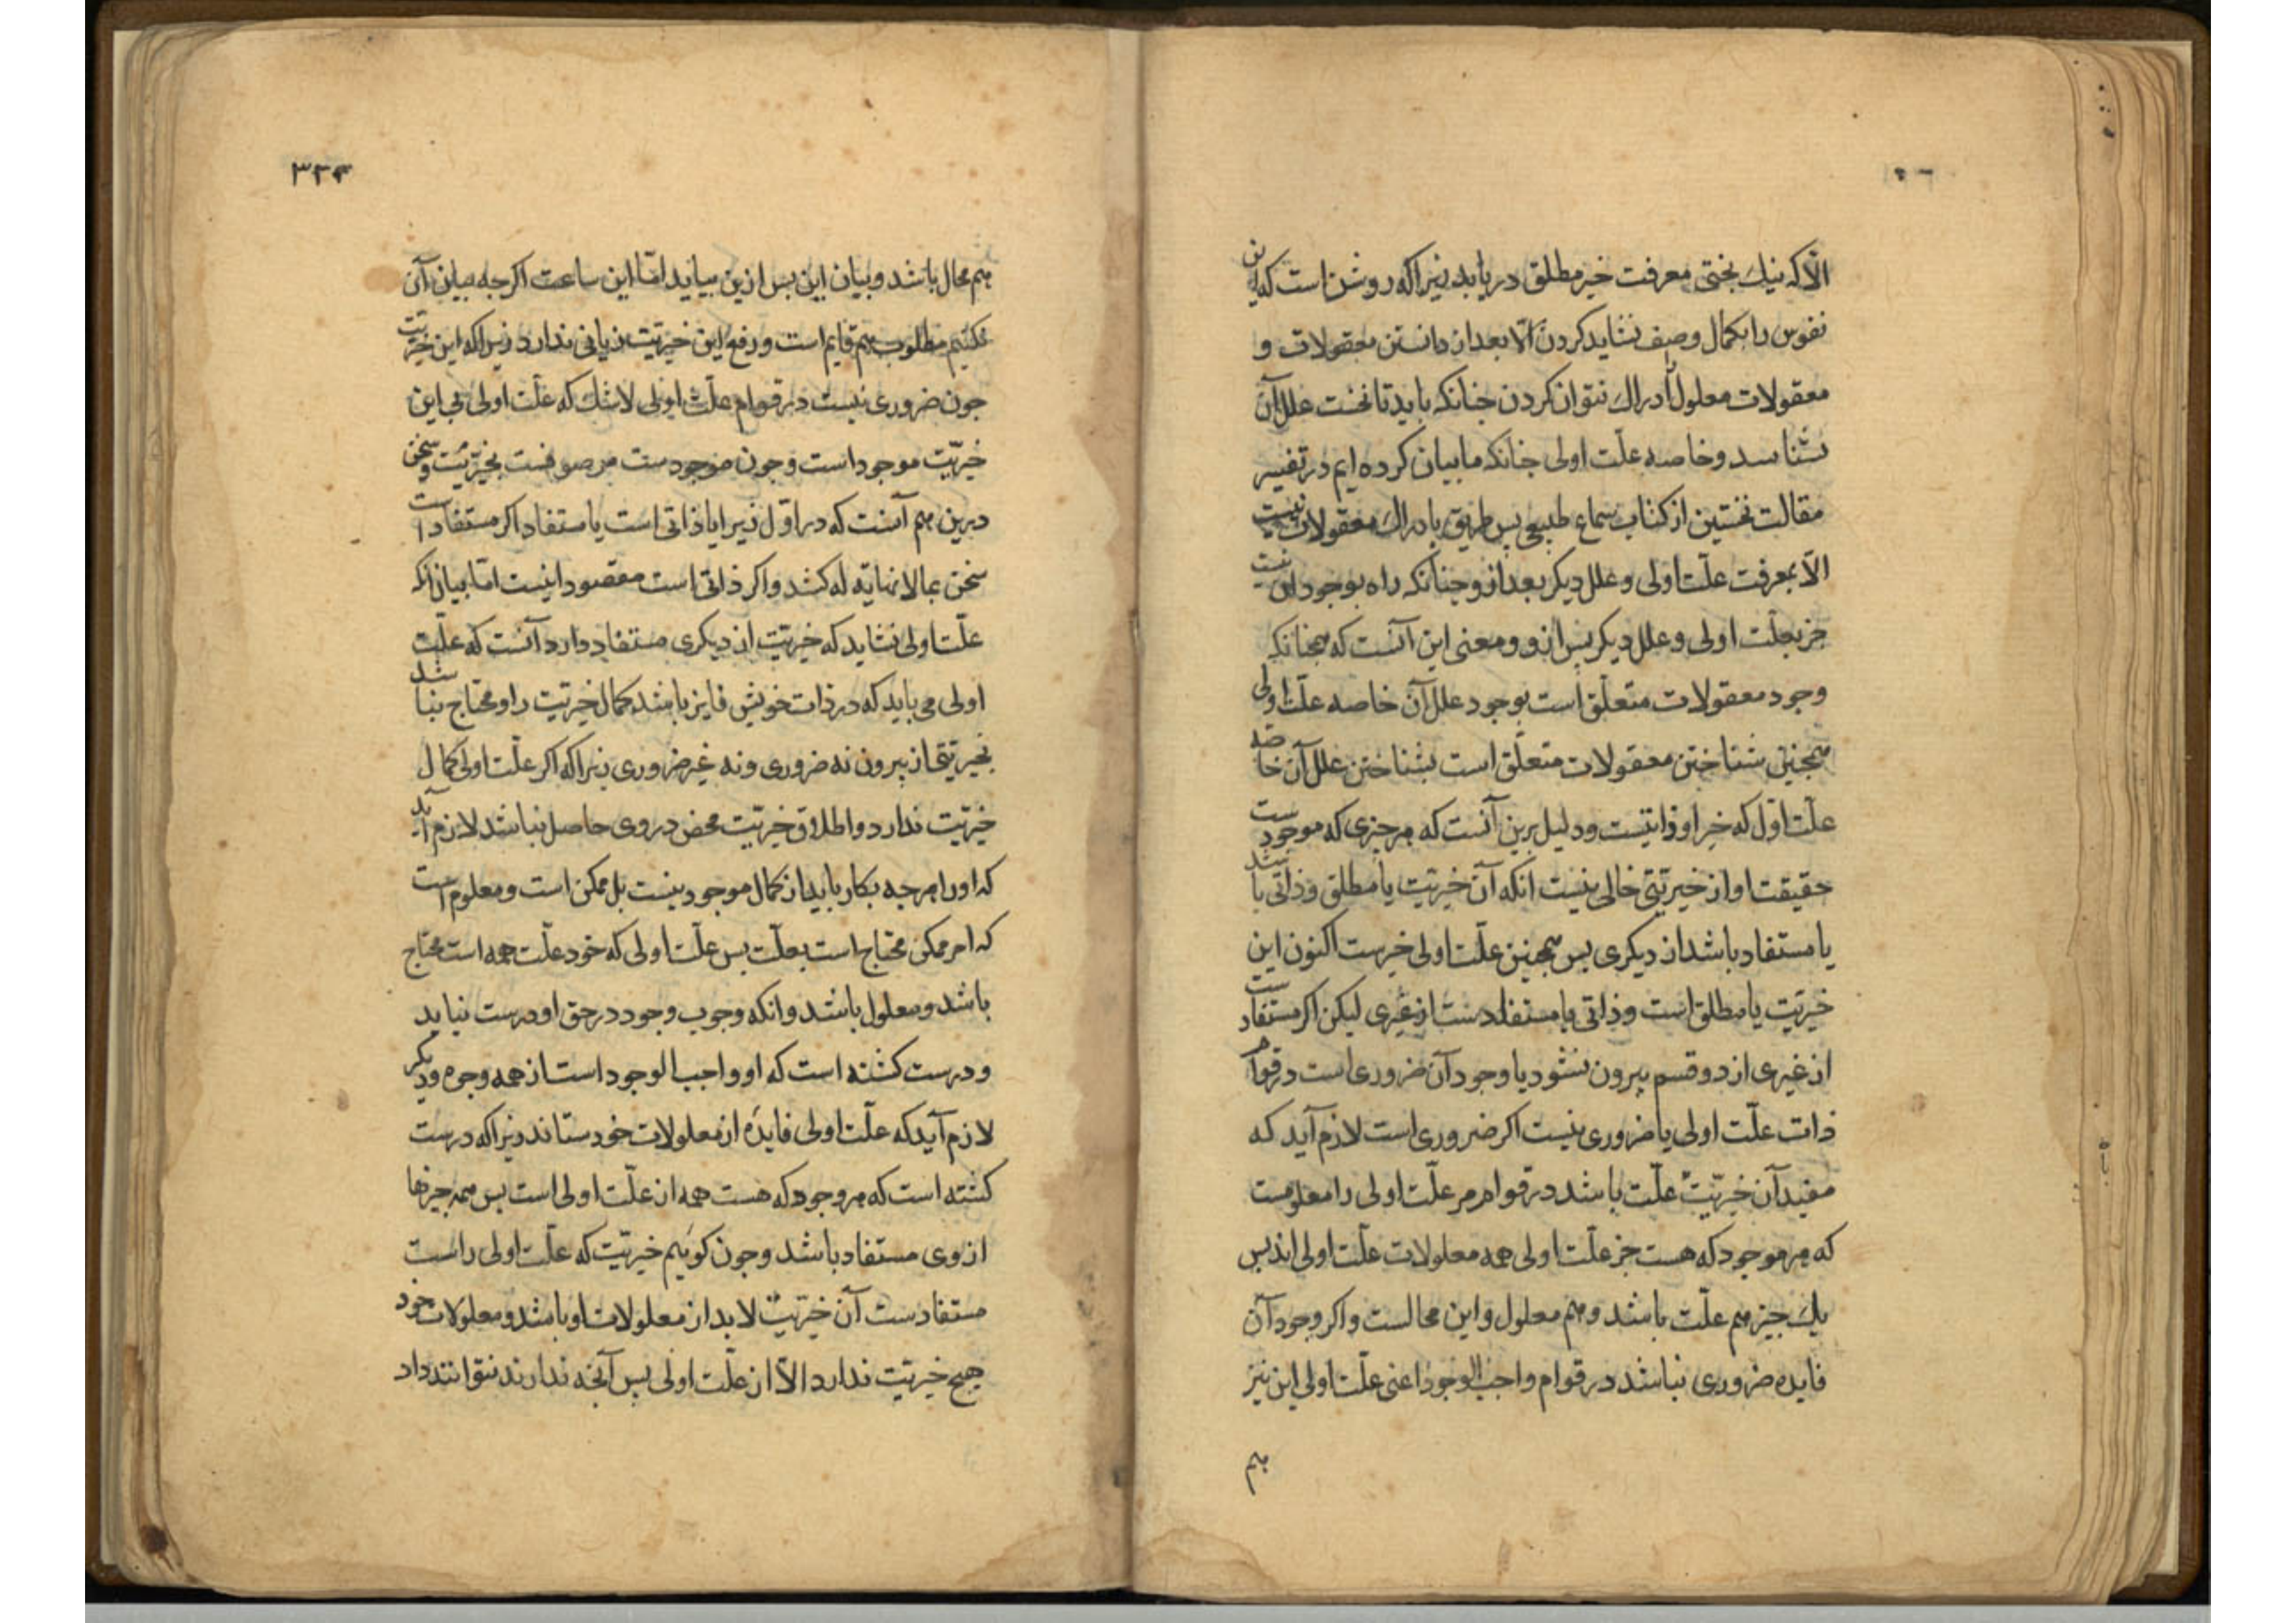 الّا که نیک بختی معرفت خیر مطلق دریابد زیراکه روشن است که این
نفوس را بکمال وصف نشاید کردن الّا بعد از دانستن معقولات و
معقولات معلول را ادراک نتوان کردن جنانکه باید تا نخست علل آن
نشناسد و خاصه علّت اولی جنانکه ما بیان کرده ایم در تفسیر
مقالت نخستین از کتاب سماع طبیعی بس طریق بادراک معقولات نیست
الّا بمعرفت علّت اولی و علل دیکر بعد ازو جنانکه راه بوجود این نیست
جز بعلّت اولی و علل دیکر بس ازو و معنی این آنست که همجنانکه
وجود معقولات متعلّق است بوجود علل آن خاصه علّت اولی
همجنین شناختن معقولات متعلّق است بشناختن علل آن خاصه
علّت اوّل که خیر او ذاتیست و دلیل برین آنست که هر جیزی که موجودست
حقیقت او از خیریّتی خالی نیست انکه آن خیریّت یا مطلق و ذاتی باشد
یا مستفاد باشد از دیکری بس همجنین علّت اولی خیرست اکنون این
خیریّت یا مطلق است و ذاتی یا مستفادست از غیری لیکن اکر مستفادست
از غیری از دو قسم بیرون نشود یا وجود آن ضروری است در قوام
ذات علّت اولی یا ضروری نیست اکر ضروری است لازم آید که
مفید آن خیریّت علّت باشد در قوام مر علّت اولی را معلومست
که هر موجود که هست جز علّت اولی همه معلولات علّت اولی اند بس
یک جیز هم علّت باشد و هم معلول و این محالست و اکر وجود آن
فایده ضروری نباشد در قوام واجب الوجود اعنی علّت اولی این نیز
هم
۳۳۴
هم محال باشد و بیان این بس ازین بیاید امّا این ساعت اکرجه بیان آن
نکنیم مطلوب هم قایم است و رفع این خیریّت زیانی ندارد زیراکه این خیریّت
جون ضروری نیست در قوام علّت اولی لاشک که علّت اولی بی این
خیریّت موجود است و جون موجودست موصوفست بخیریّت و سخن
درین هم آنست که در اوّل زیرا یا ذاتی است یا مستفاد اکر مستفاد است
سخن بما لا نهایة له کشد و اکر ذاتی است مقصود اینست امّا بیان آنکه
علّت اولی نشاید که خیریّت از دیکری مستفاد دارد آنست که علّت
اولی می باید که در ذات خویش فایز باشد کمال خیریّت را و محتاج نباشد
بخیریّتی از بیرون نه ضروری و نه غیر ضروری زیراکه اکر علّت اولی کمال
خیریّت ندارد و اطلاق خیریّت محض در وی حاصل نباشد لازم آید
که او را هرجه بکار باید از کمال موجود نیست بل ممکن است و معلوم است
که امر ممکن محتاج است بعلّت بس علّت اولی که خود علّت همه است محتاج
باشد و معلول باشد و انکه وجوب وجود در حق او درست نیاید
و درست کشته است که او واجب الوجود است از همه وجوه و دیکر
لازم آید که علّت اولی فایده از معلولات خود ستاند زیراکه درست
کشته است که هر وجود که هست همه از علّت اولی است بس همه جیزها
از وی مستفاد باشد و جون کوئیم خیریّت که علّت اولی راست
مستفادست آن خیریّت لابد از معلولات او باشد و معلولات خود
هیچ خیریّت ندارد الّا از علّت اولی بس آنجه ندارند نتوانند داد